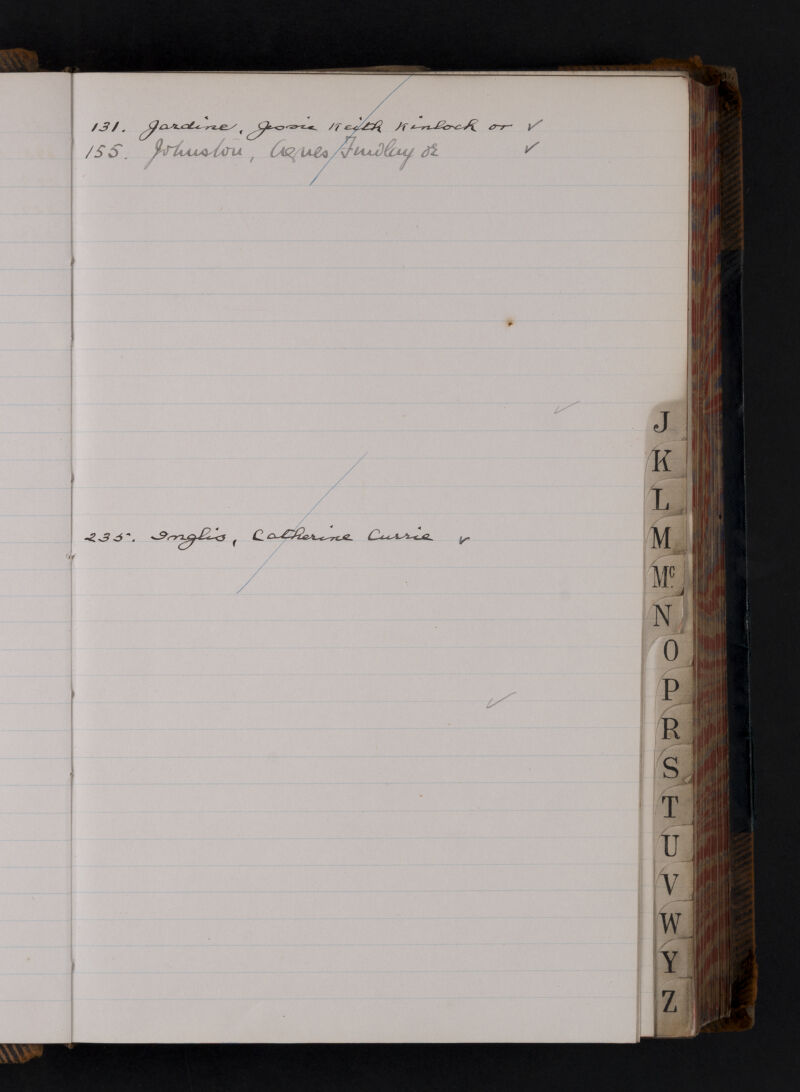 131. Jardine, Jessie Keith Kinloch or ✓
155. Johnston, Agnes Findlay or ✓
✓
235. Inglis, Catherine Currie ✓
✓
J
K
L
M
Mc.
N
O
P
R
S
T
U
V
W
Y
Z